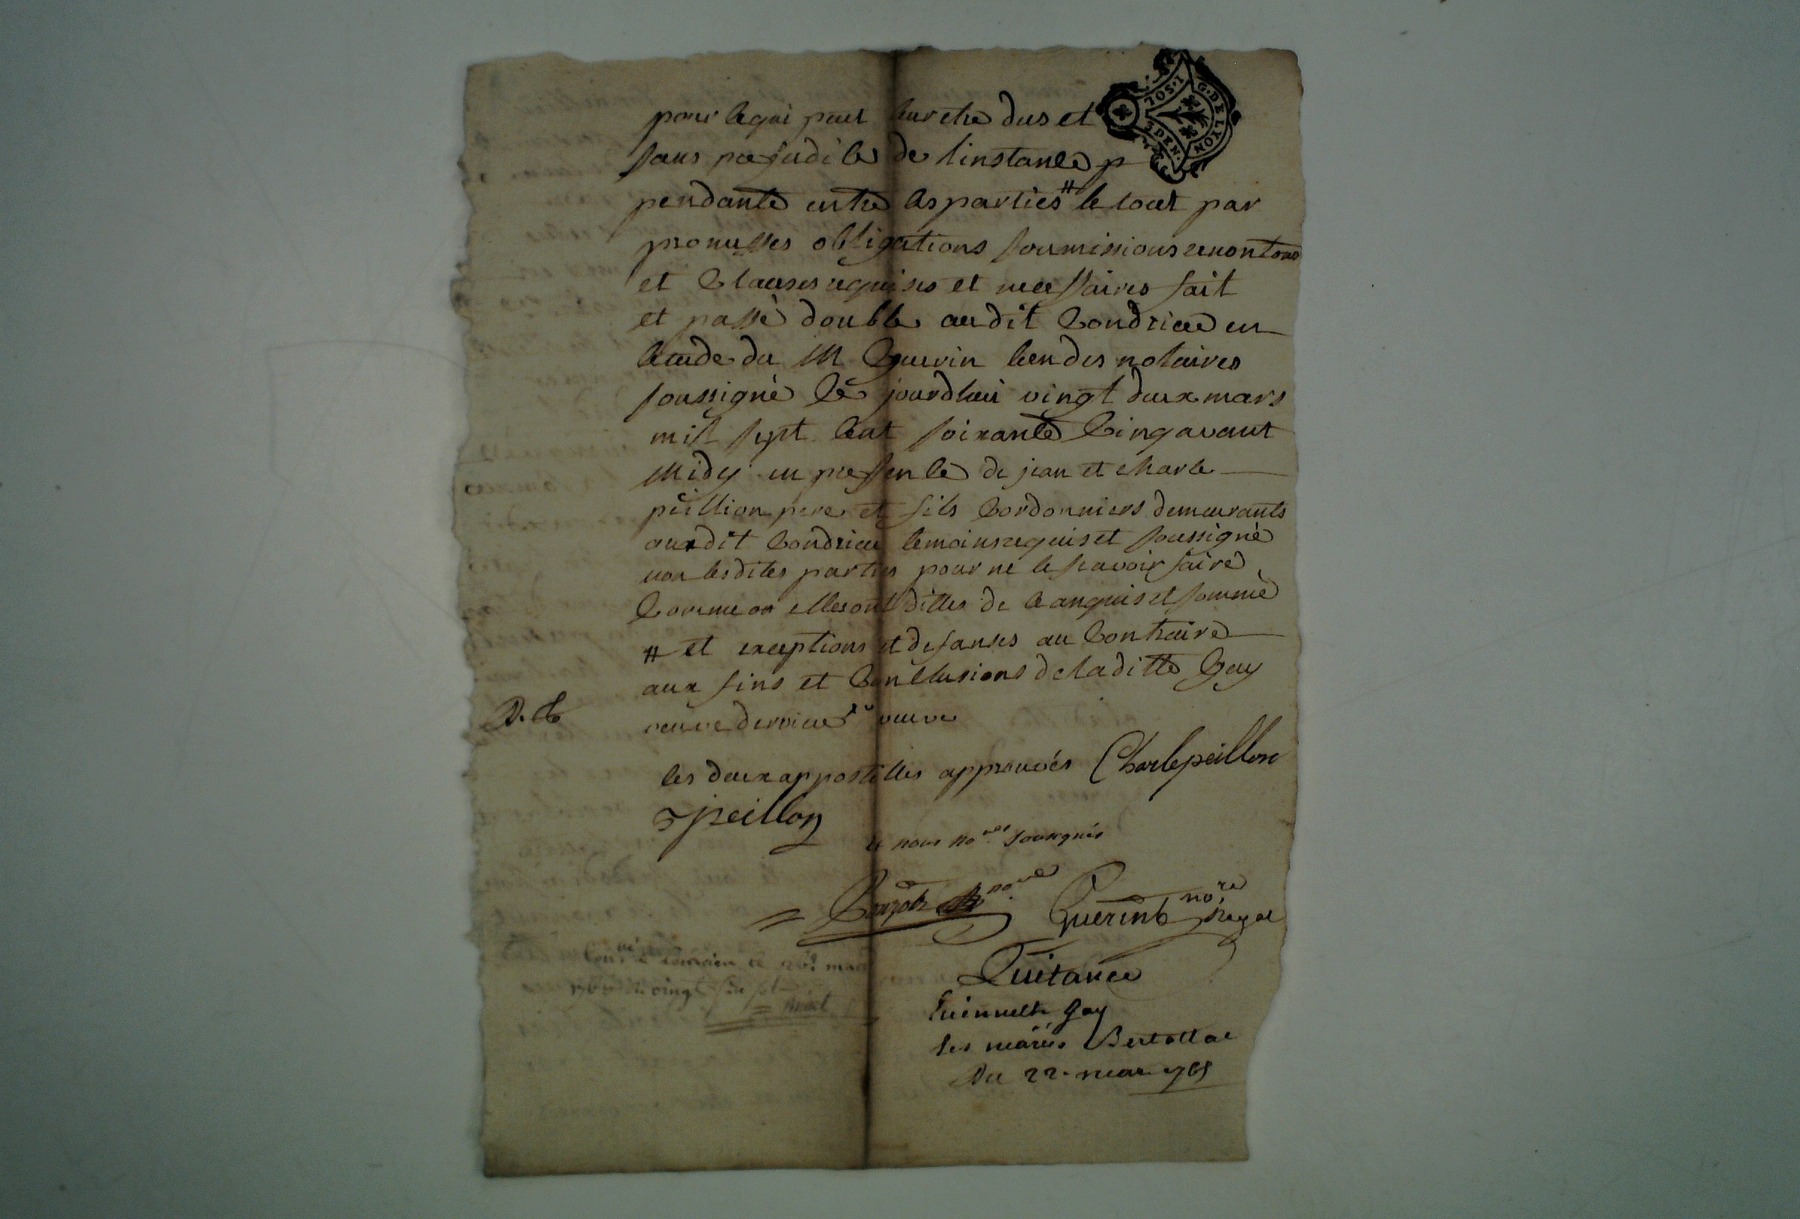 pour ce qui peut leur etre dus et
sans prejudice de linstance p
pendante entre les parties # le tout par
promesses obligations soumissions renontons
et clauses requises et necessaires fait
et passé double audit Condrieu en
letude du M Guerin lun des notaires
soussigné le jourdhui vingt deux mars
mil sept cent soixante cinq avant
Midy en presence de jean et charle
peillion pere et fils cordonniers demeurants
audit Condrieu temoins requis et soussigné
non lesdites parties pour ne le scavoir faire
comme elles ont dittes de ce enquis et sommé
# et exceptions et defanses au contraire
aux fins et conclusions de laditte Gay
veuve
les deux appostilles approuvées Charle peillon
J peillon
et nous no.res soussignés
no.re Guerin no.re Royal
Quitance
gay
les mariés Bertollat
Du 22. mar 1765
2 SOLS. 1 DEN.
G. DE LYON